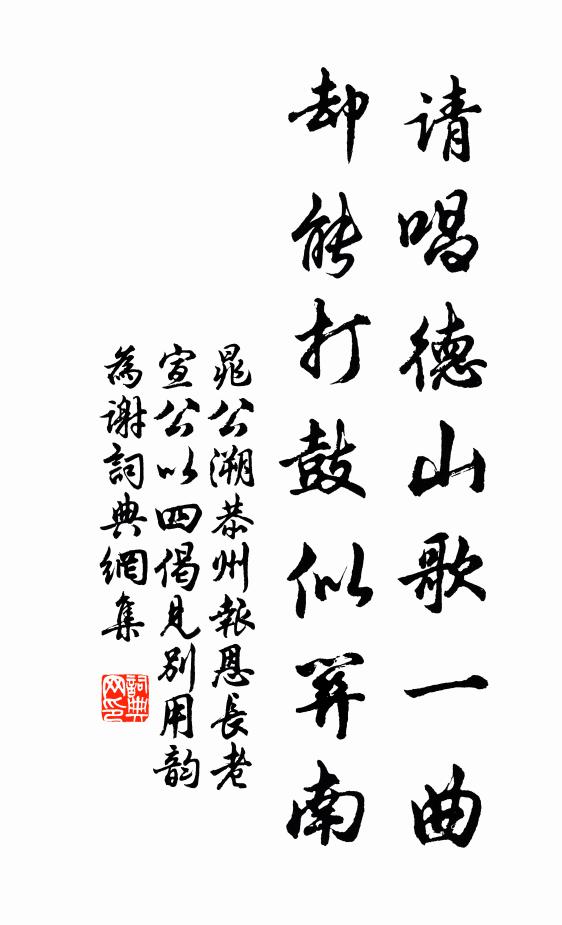 请唱德山歌一曲
却能打鼓似關南
晁公溯恭州報恩長老
宣公以四偈見別用韵
為謝詞典網集
詞典
网印